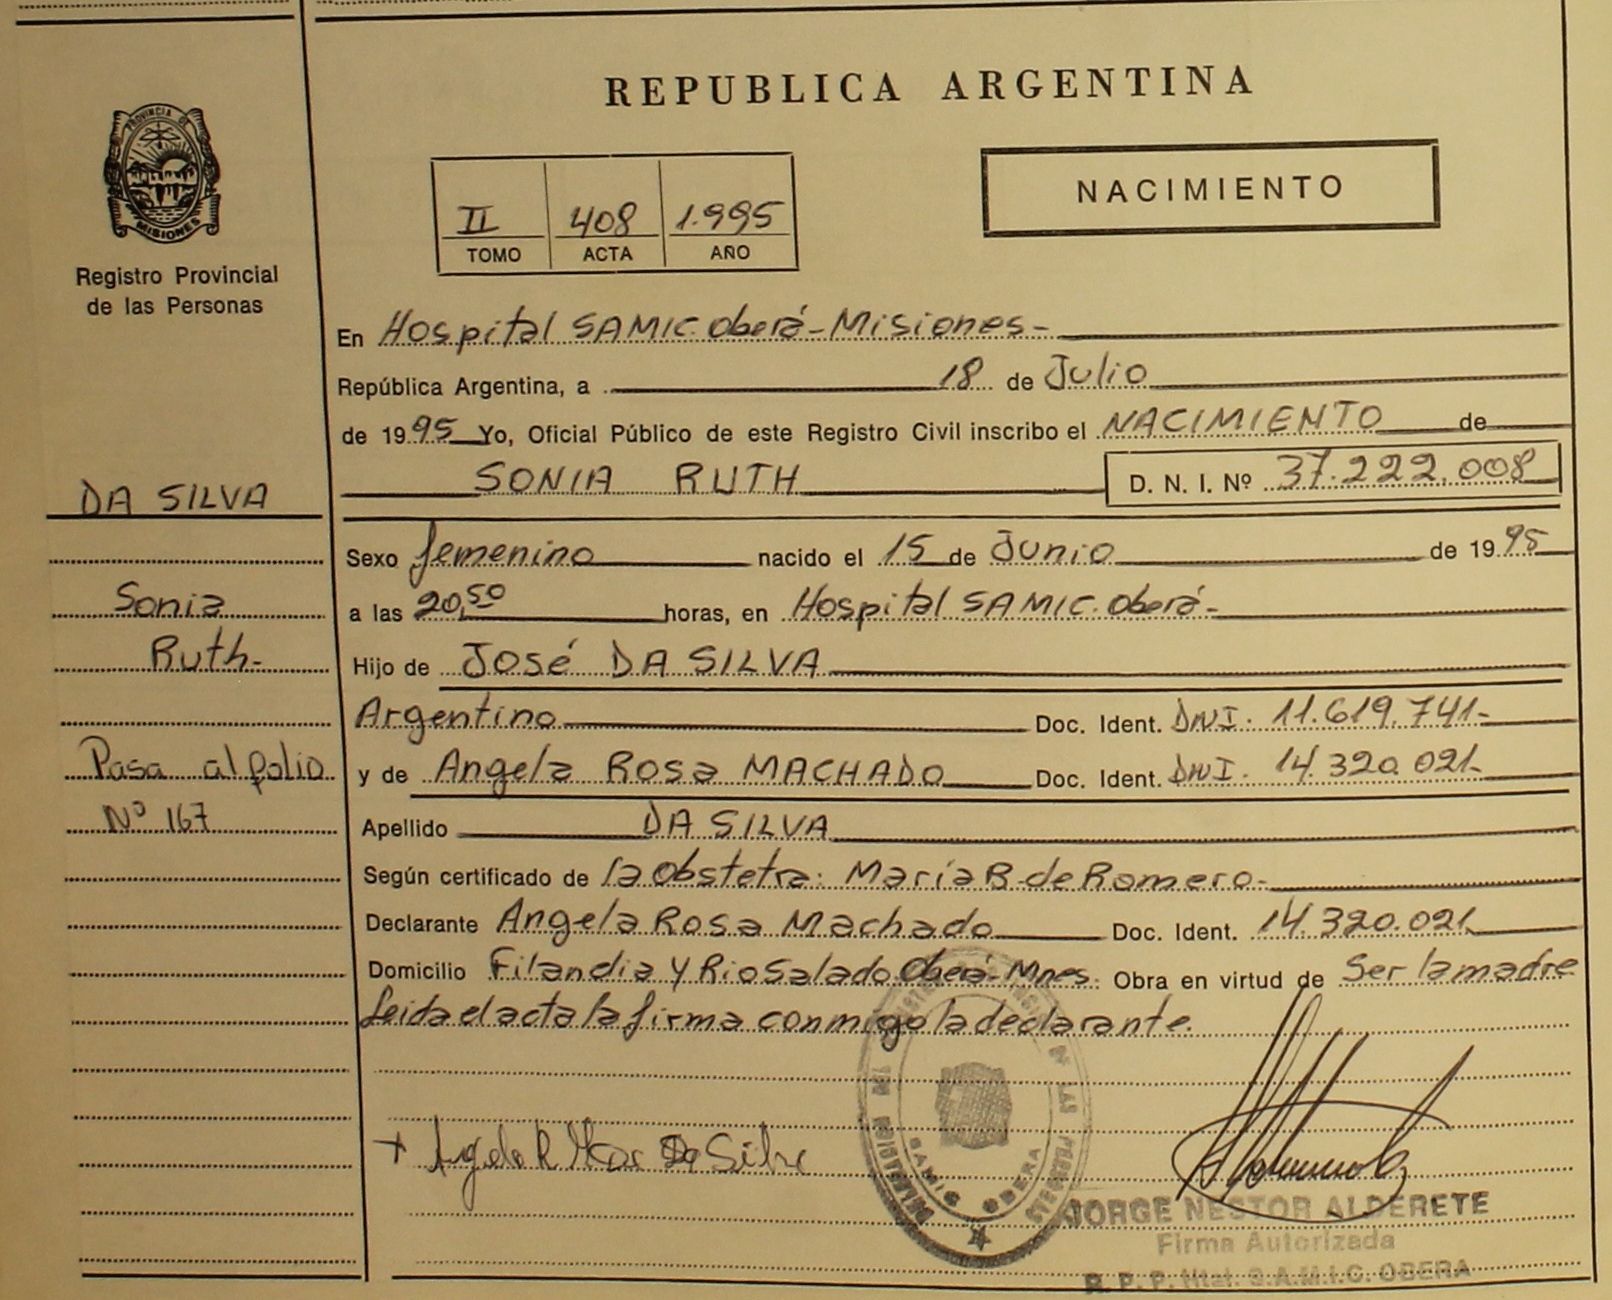 REPUBLICA ARGENTINA
PROVINCIA DE
MISIONES
Registro Provincial
de las Personas
NACIMIENTO
II 408 1.995
TOMO ACTA AÑO
En Hospital SAMIC. Oberá - Misiones -
República Argentina, a 18 de Julio
de 1995 Yo, Oficial Público de este Registro Civil inscribo el NACIMIENTO de
SONIA RUTH D. N. I. Nº 37.222.008
DA SILVA
Sonia
Ruth-
Pasa al folio
Nº 167
Sexo femenino nacido el 15 de Junio de 1995
a las 20,50 horas, en Hospital SAMIC. Oberá -
Hijo de José DA SILVA
Argentino Doc. Ident. DNI. 11.619.741-
y de Angela Rosa MACHADO Doc. Ident. DNI. 14.320.021-
Apellido DA SILVA
Según certificado de la Obstetra: María R. de Romero-
Declarante Angela Rosa Machado Doc. Ident. 14.320.021
Domicilio Filandia y Rio Salado. Oberá - Mnes. Obra en virtud de Ser la madre
Leida el acta la firma conmigo la declarante.
SAMIC OBERA
JORGE NESTOR ALDERETE
Firma Autorizada
R. P. P. Htal. S.A.M.I.C. OBERA